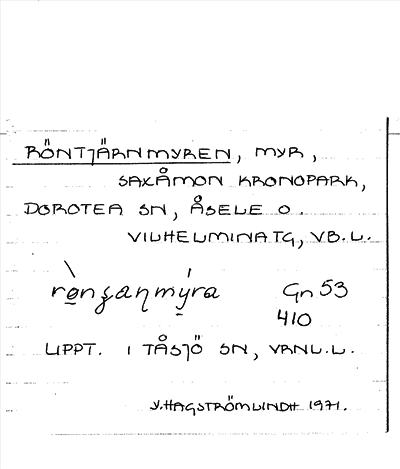 RÖNTJÄRNMYREN, MYR,
SAXÅMON KRONOPARK,
DOROTEA SN, ÅSELE O.
VILHELMINA TG, V.B.L.
Gn 53
410
UPPT. I TÅSJÖ SN, VRNL.L.
V.HAGSTRÖMLINDH 1971.